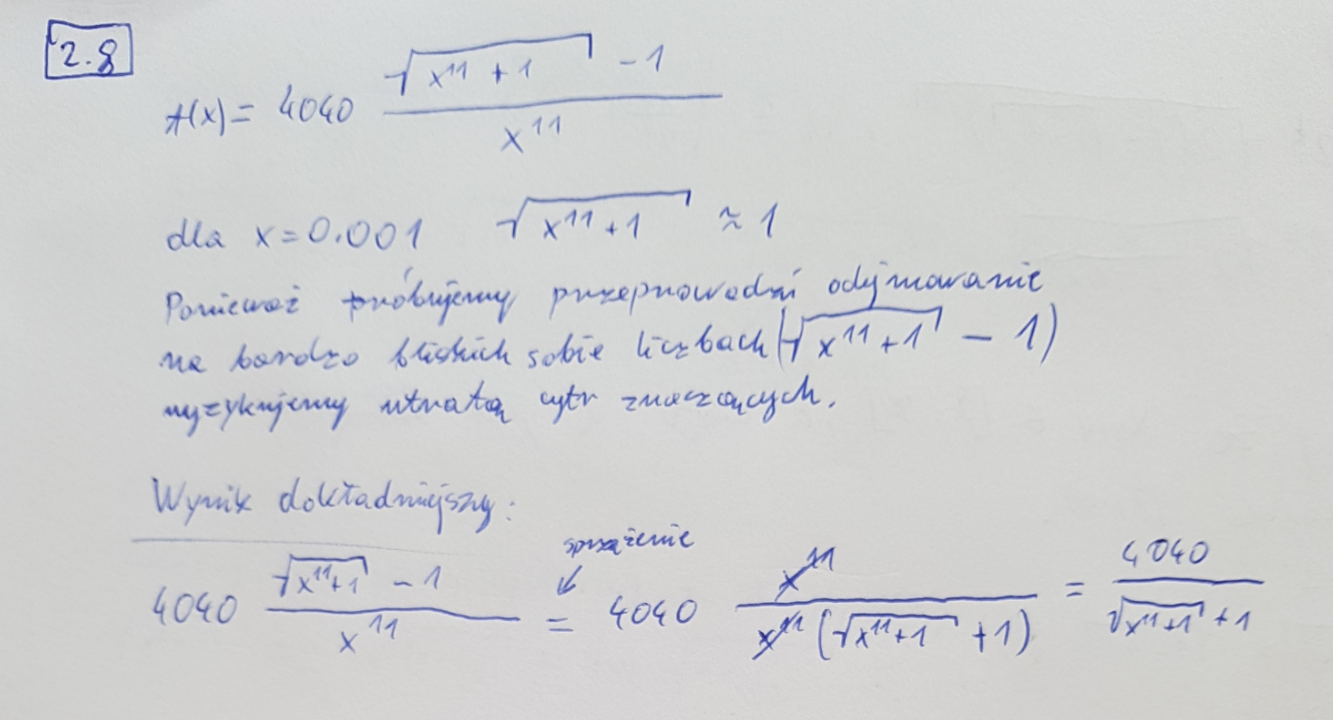 2.8
f(x) = 4040 (√(x^11 + 1) - 1) / x^11
dla x = 0.001 √(x^11 + 1) ≈ 1
Ponieważ próbujemy przeprowadzić odejmowanie
na bardzo bliskich sobie liczbach (√(x^11 + 1) - 1)
ryzykujemy utratą cyfr znaczących.
Wynik dokładniejszy:
sprzężenie
4040 (√(x^11 + 1) - 1) / x^11 = 4040 x^11 / (x^11 (√(x^11 + 1) + 1)) = 4040 / (√(x^11 + 1) + 1)